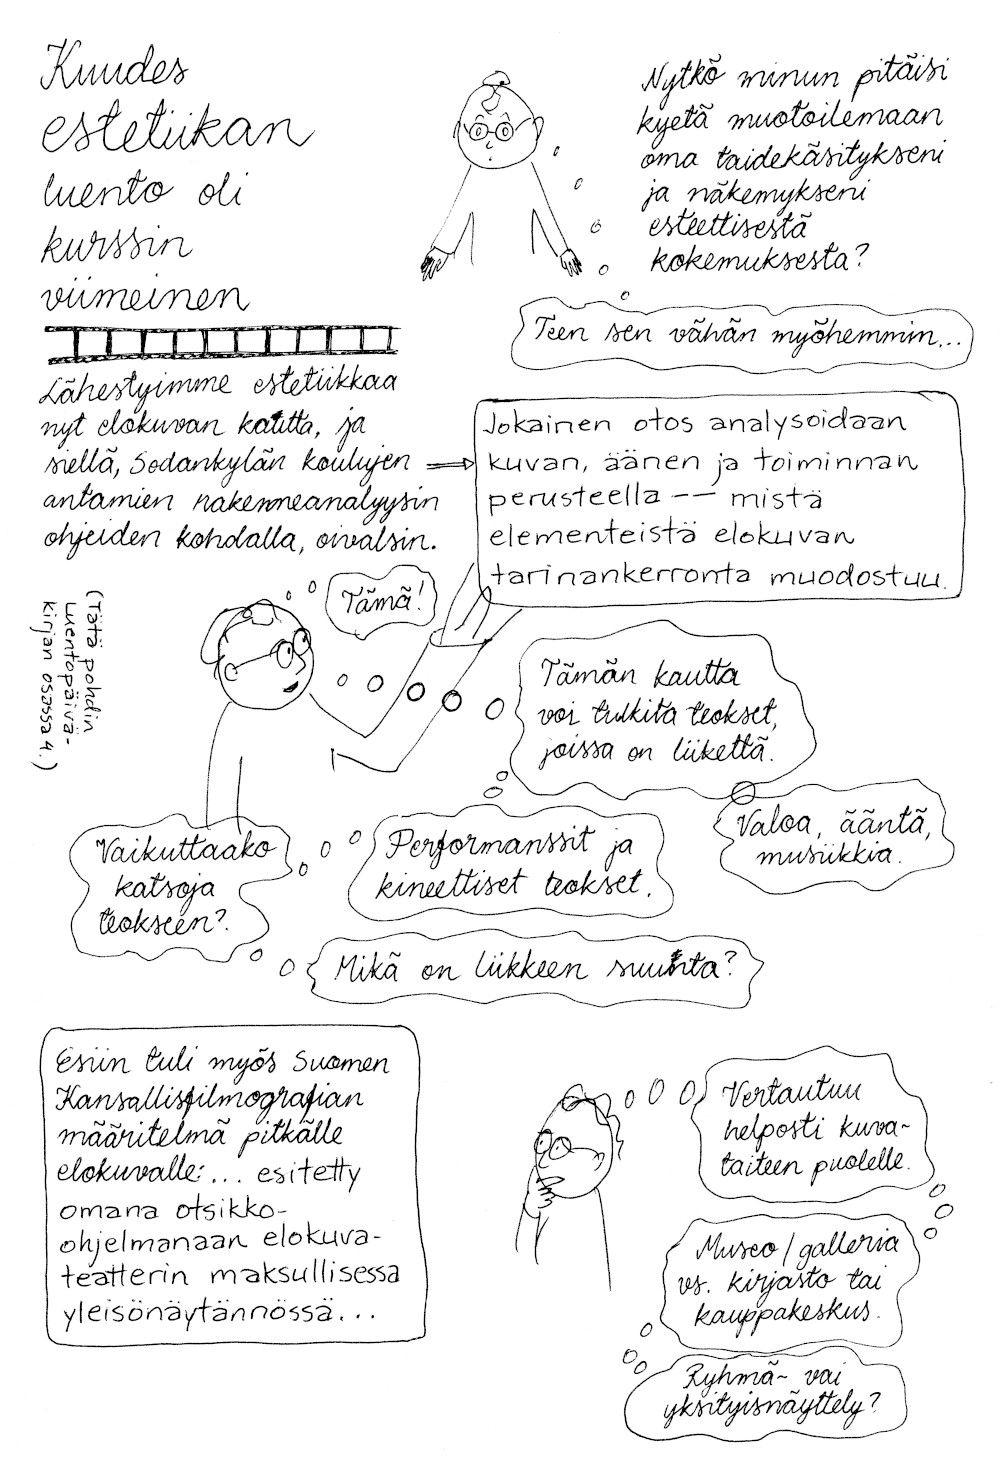 Kuudes
estetiikan
luento oli
kurssin
viimeinen
Nytkö minun pitäisi
kyetä muotoilemaan
oma taidekäsitykseni
ja näkemykseni
esteettisestä
kokemuksesta?
Teen sen vähän myöhemmin...
Lähestyimme estetiikkaa
nyt elokuvan kautta, ja
siellä, Sodankylän koulujen
antamien rakenneanalyysin
ohjeiden kohdalla, oivalsin.
Jokainen otos analysoidaan
kuvan, äänen ja toiminnan
perusteella -- mistä
elementeistä elokuvan
tarinankerronta muodostuu.
(Tätä pohdin
luentopäivä-
kirjan osassa 4.)
Tämä!
Tämän kautta
voi tulkita teokset,
joissa on liikettä.
Valoa, ääntä,
musiikkia.
Performanssit ja
kineettiset teokset.
Vaikuttaako
katsoja
teokseen?
Mikä on liikkeen suunta?
Esiin tuli myös Suomen
Kansallisfilmografian
määritelmä pitkälle
elokuvalle: ... esitetty
omana otsikko-
ohjelmanaan elokuva-
teatterin maksullisessa
yleisönäytännössä...
Vertautuu
helposti kuva-
taiteen puolelle.
Museo/galleria
vs. kirjasto tai
kauppakeskus.
Ryhmä- vai
yksityisnäyttely?